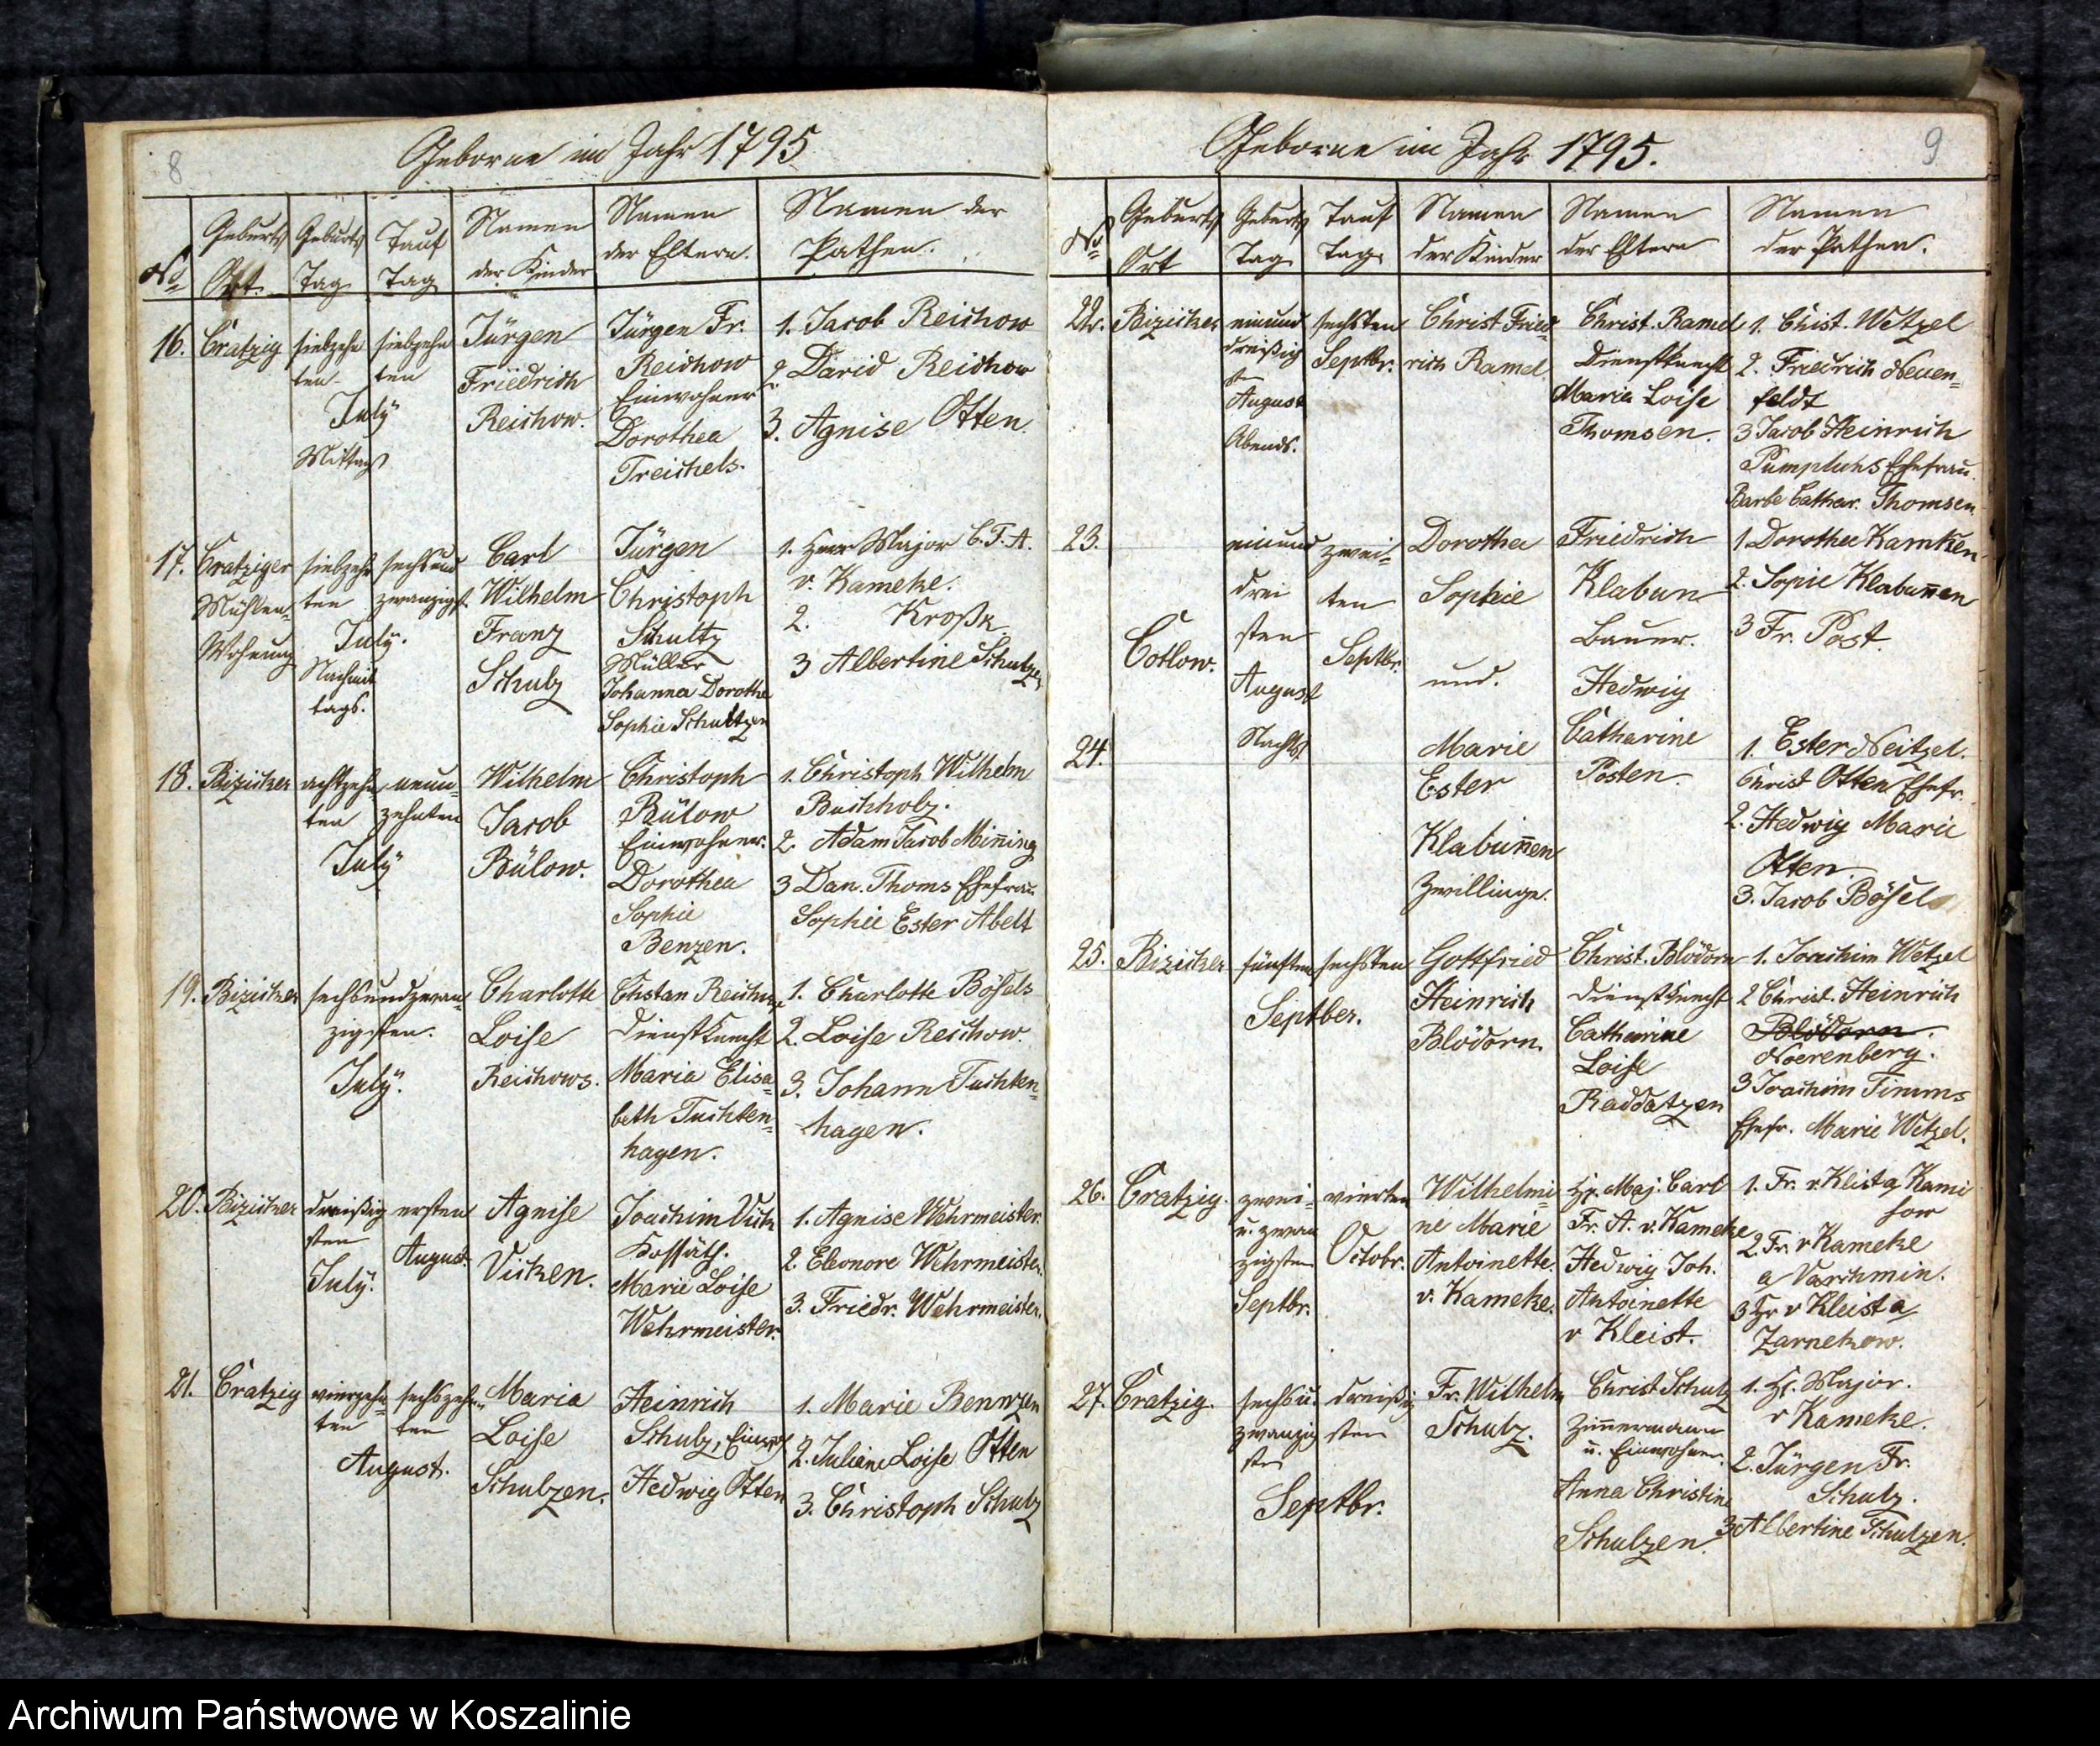 8
Geborne im Jahr 1795
No
Geburts Ort.
Geburts Tag
Tauf Tag
Namen der Kinder
Namen der Eltern.
Namen der Pathen.
16.
Cratzig
siebzehn
ten
July
Mittags
siebzehn
ten
Jürgen
Friedrich
Reichow.
Jürgen Fr.
Reichow
Einwohner
Dorothea
Treichels.
1. Jacob Reichow
2 David Reichow
3. Agnise Otten.
17.
Cratziger
Mühlen-
Wohnung
siebzehn
ten
July.
Nachmit
tags.
sechs und
zwanzigst.
Carl
Wilhelm
Franz
Schulz
Jürgen
Christoph
Schultz
Müller
Johanna Dorothea
Sophie Schultzen
1. Herr Major C. F. A.
v. Kameke.
2. Kroßk
3 Albertine Schulzen
18.
Biziker
achtzehn
ten
July
neun-
zehnten
Wilhelm
Jacob
Bülow.
Christoph
Bülow
Einwohner.
Dorothea
Sophie
Benzen.
1. Christoph Wilhelm
Buchholz.
2. Adam Jacob Miñing
3 Dan. Thoms Ehefrau
Sophie Ester Abelt
19.
Biziker
sechsundzwan-
zigsten.
July.
Charlotte
Loise
Reichows.
Chstan Reichow
Dienst Knecht
Maria Elisa=
beth Tuchten=
hagen.
1. Charlotte Bösels
2. Loise Reichow.
3. Johann Tuchten=
hagen.
20.
Biziker
dreißig
sten
July.
ersten
August.
Agnise
Vicken.
Joachim Vick
Kossäth.
Marie Loise
Wehrmeister.
1. Agnise Wehrmeister.
2. Eleonore Wehrmeister.
3. Friedr. Wehrmeister.
21.
Cratzig
vierzehn=
ten
sechszehn=
ten
August.
Maria
Loise
Schulzen.
Heinrich
Schulz, Einwoh
Hedwig Otten
1. Marie Bennzen
2. Juliane Loise Otten
3. Christoph Schulz
9
Geborne im Jahr 1795.
No
Geburts Ort
Geburts Tag
Tauf Tag.
Namen der Kinder
Namen der Eltern
Namen der Pathen.
22.
Biziker
einund
dreißig
st
August
Abends.
sechsten
Septbr.
Christ. Fried=
rich Ramel
Christ. Ramel
Dienstknecht
Maria Loise
Thomsen.
1. Chist. Wetzel
2. Friedrich Neuen=
feldt
3 Jacob Heinrich
Pumpluhs Ehefrau.
Barbe Cathar. Thomsen
23.
Cotlow.
einund
drei
sten
August
Nachts
zwei-
ten
Septbr.
Dorothea
Sophie
und.
Friedrich
Klabun
Bauer.
Hedwig
Catharine
Posten.
1 Dorothea Kamken
2. Sopie Klabuñen
3 Fr. Post.
24.
Marie
Ester
Klabuñen
Zwillinge.
1. Ester Neitzel.
Christ Otten Ehefr.
2. Hedwig Marie
Otten.
3. Jacob Bösel
25.
Biziker
fünften
Septber.
sechsten
Gottfried
Heinrich
Blödorn.
Christ. Blödorn
Dienstknecht
Catharine
Loise
Raddatzen
1. Joachim Wetzel
2 Christ. Heinrich
Blödorn.
Noerenberg.
3 Joachim Timms
Ehefr. Marie Wetzel.
26.
Cratzig.
zwei-
u. zwan
zigsten
Septbr.
vierten
Octobr.
Wilhelmi
ne Marie
Antoinette
v. Kameke.
Hr. Maj. Carl
Fr. A. v. Kameke
Hedwig Joh.
Antoinette
v Kleist.
1. Fr. v. Kleist a Kami
sow
2. Fr. v Kameke
a Varchmin.
3 Hr v Kleist a
Zarnekow.
27.
Cratzig.
sechs u.
zwanzig
sten
Septbr.
dreißig
sten
Fr. Wilhelm
Schulz.
Christ Schulz
Zim̃ermann
u. Einwohner.
Anna Christine
Schulzen.
1. Hr. Major.
v Kameke.
2. Jürgen Fr.
Schulz.
3 Albertine Schulzen.
Archiwum Państwowe w Koszalinie